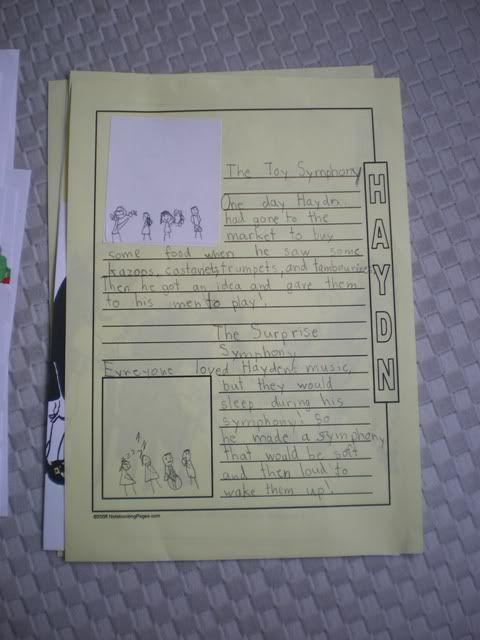 The Toy Symphony
One day Haydn
had gone to the
market to buy
some food when he saw some
kazoos, castanets, trumpets, and tambourines
Then he got an idea and gave them
to his men to play!
The Surprise
Symphony
Evreyone loved Hayden't music,
but they would
sleep during his
symphony! So
he made a symphony
that would be soft
and then loud to
wake them up!
HAYDN
©2008 NotebookingPages.com